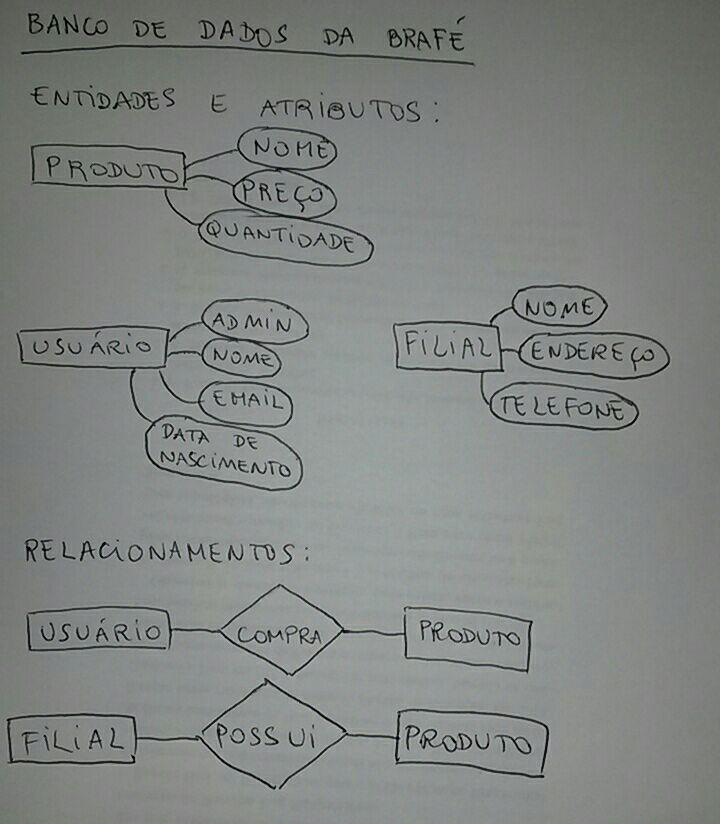 BANCO DE DADOS DA BRAFÉ
ENTIDADES E ATRIBUTOS:
PRODUTO
NOME
PREÇO
QUANTIDADE
USUÁRIO
ADMIN
NOME
EMAIL
DATA DE
NASCIMENTO
FILIAL
NOME
ENDEREÇO
TELEFONE
RELACIONAMENTOS:
USUÁRIO COMPRA PRODUTO
FILIAL POSSUI PRODUTO